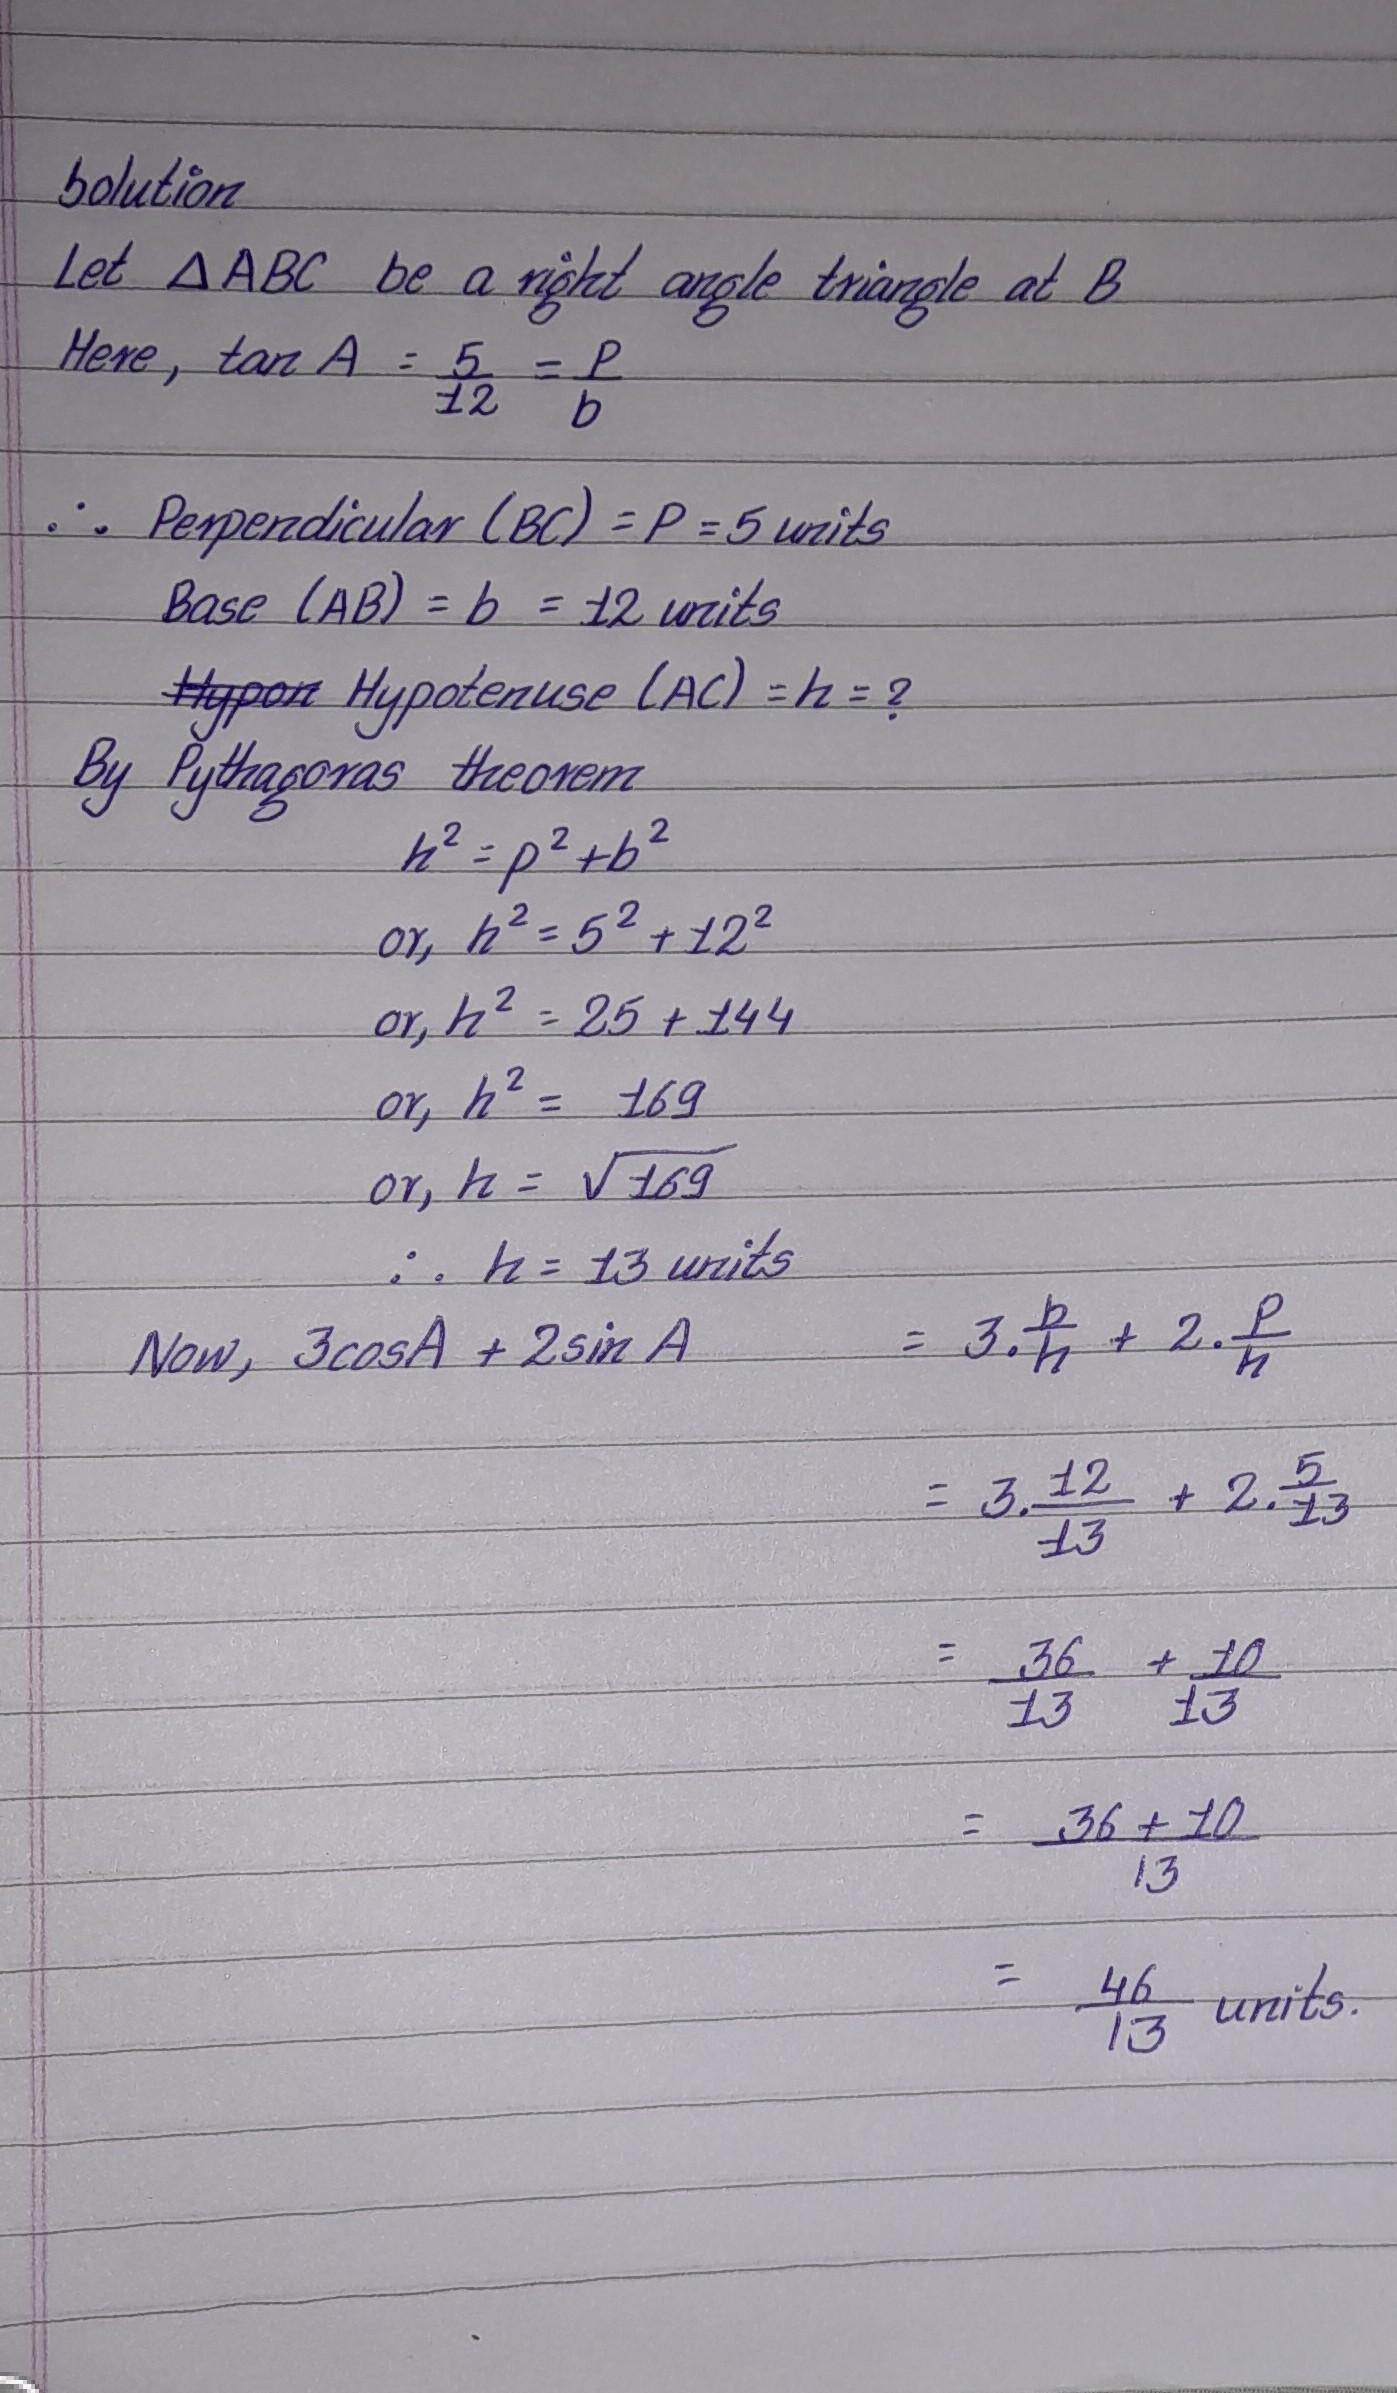 Solution
Let △ABC be a right angle triangle at B
Here, tan A = 5/12 = P/b
∴ Perpendicular (BC) = P = 5 units
Base (AB) = b = 12 units
Hypon Hypotenuse (AC) = h = ?
By Pythagoras theorem
h² = p² + b²
or, h² = 5² + 12²
or, h² = 25 + 144
or, h² = 169
or, h = √169
∴ h = 13 units
Now, 3cosA + 2sin A = 3.b/h + 2.P/h
= 3.12/13 + 2.5/13
= 36/13 + 10/13
= 36 + 10/13
= 46/13 units.